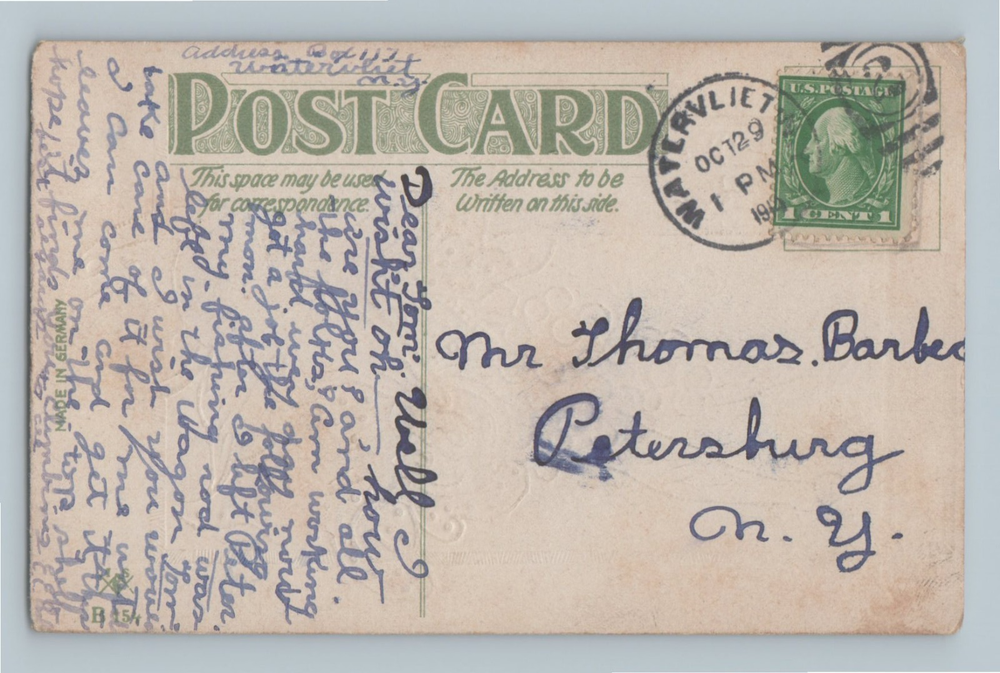 Address Box 117
Watervliet
N.Y.
POST CARD
This space may be used
for correspondence.
The Address to be
Written on this side.
WATERVLIET
OCT 29
1 PM
191
U.S. POSTAGE
1 CENT 1
Mr Thomas. Barber
Petersburg
N. Y.
MADE IN GERMANY
B 154
Dear Tom: Well I
wright ok how
are you and all
the folks, Am working
hard every
got a job the following
mon. after I left Peter.
my fishing rod was
left in the wagon
and I wish you would
take care of it for me until
I can come and get it
leave me on the
hope